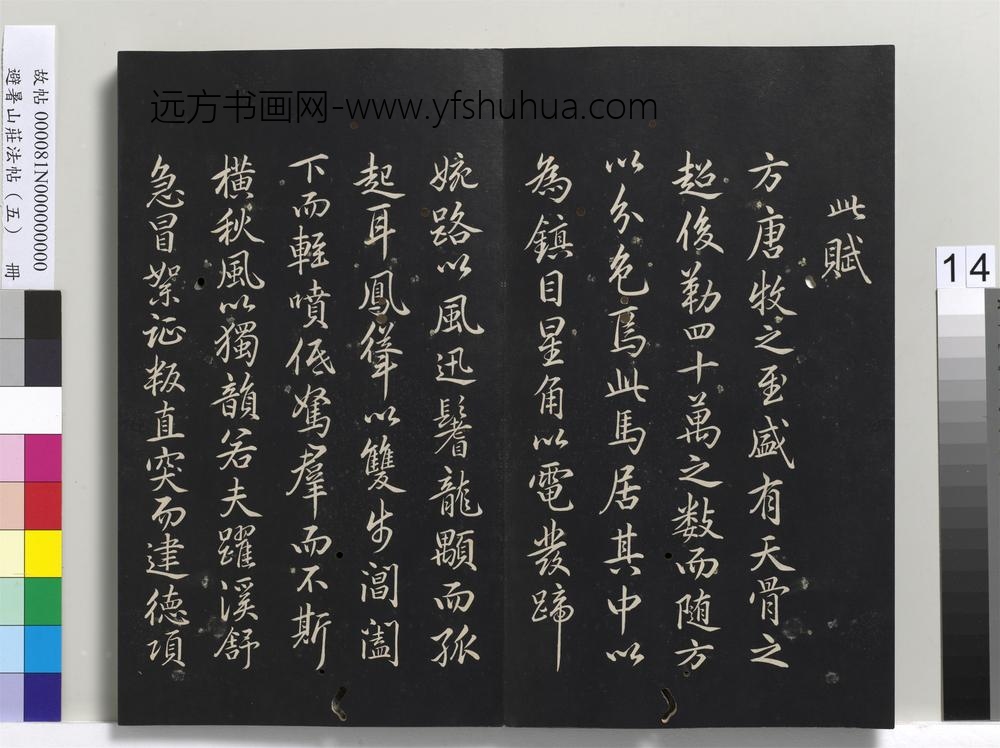 远方书画网-www.yfshuhua.com
此賦
方唐牧之至盛有天骨之
超俊勒四十萬之数而随方
以分色焉此馬居其中以
為鎮目星角以電發蹄
婉路以風迅鬐龍顒而孤
起耳鳳聳以雙步閶闔
下而輕噴低駑羣而不斯
橫秋風以獨韻若夫躍溪舒
急冒絮証叛直突而建德項
故帖000081N000000000
避暑山莊法帖（五） 冊
14